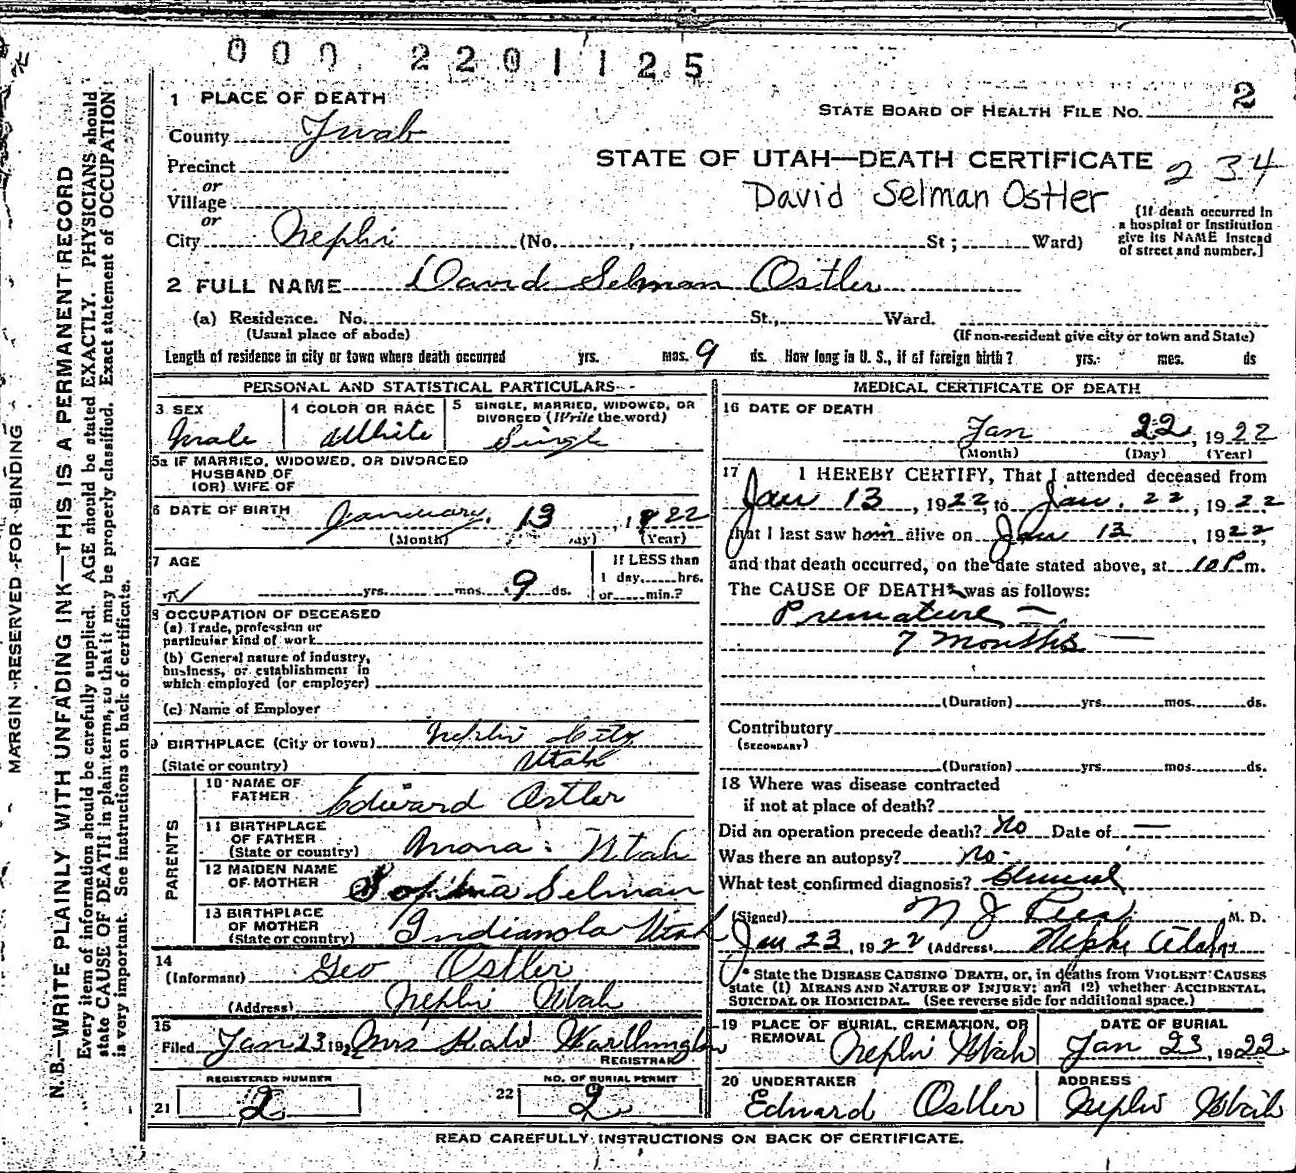 000 2201125
2
1 PLACE OF DEATH
STATE BOARD OF HEALTH FILE No.
County Juab
STATE OF UTAH—DEATH CERTIFICATE 234
Precinct
or
Village
David Selman Ostler
or
City Nephi (No. , St ; Ward)
[If death occurred in
a hospital or institution
give its NAME instead
of street and number.]
2 FULL NAME David Selman Ostler
(a) Residence. No. St., Ward.
(Usual place of abode) (If non-resident give city or town and State)
Length of residence in city or town where death occurred yrs. mos. 9 ds. How long in U. S., if of foreign birth? yrs. mos. ds
PERSONAL AND STATISTICAL PARTICULARS
3 SEX
Male
4 COLOR OR RACE
White
5 SINGLE, MARRIED, WIDOWED, OR
DIVORCED (Write the word)
Single
5a IF MARRIED, WIDOWED, OR DIVORCED
HUSBAND OF
(OR) WIFE OF
6 DATE OF BIRTH
January 13, 1922
(Month) (Day) (Year)
7 AGE
yrs. mos. 9 ds.
If LESS than
1 day, hrs.
or min.?
8 OCCUPATION OF DECEASED
(a) Trade, profession or
particular kind of work
(b) General nature of industry,
business, or establishment in
which employed (or employer)
(c) Name of Employer
9 BIRTHPLACE (City or town) Nephi City
(State or country) Utah
PARENTS
10 NAME OF
FATHER Edward Ostler
11 BIRTHPLACE
OF FATHER
(State or country) Mona Utah
12 MAIDEN NAME
OF MOTHER Sophia Selman
13 BIRTHPLACE
OF MOTHER
(State or country) Indianola Utah
14
(Informant) Geo Ostler
(Address) Nephi Utah
15
Filed Jan 23 1922 Mrs Worthington
REGISTRAR
21 REGISTERED NUMBER
2
22 NO. OF BURIAL PERMIT
2
MEDICAL CERTIFICATE OF DEATH
16 DATE OF DEATH
Jan 22, 1922
(Month) (Day) (Year)
17 I HEREBY CERTIFY, That I attended deceased from
Jan 13, 1922, to Jan. 22, 1922
that I last saw him alive on Jan 13, 1922,
and that death occurred, on the date stated above, at 10 P m.
The CAUSE OF DEATH* was as follows:
Premature —
7 months —
(Duration) yrs. mos. ds.
Contributory
(SECONDARY)
(Duration) yrs. mos. ds.
18 Where was disease contracted
if not at place of death?
Did an operation precede death? No Date of —
Was there an autopsy? no
What test confirmed diagnosis?
(Signed) M. D.
Jan 23, 1922 (Address) Nephi Utah
* State the DISEASE CAUSING DEATH, or, in deaths from VIOLENT CAUSES
state (1) MEANS AND NATURE OF INJURY; and (2) whether ACCIDENTAL,
SUICIDAL OR HOMICIDAL. (See reverse side for additional space.)
19 PLACE OF BURIAL, CREMATION, OR
REMOVAL Nephi Utah
DATE OF BURIAL
Jan 23, 1922
20 UNDERTAKER
Edward Ostler
ADDRESS
Nephi Utah
READ CAREFULLY INSTRUCTIONS ON BACK OF CERTIFICATE.
MARGIN RESERVED FOR BINDING
N. B.—WRITE PLAINLY WITH UNFADING INK—THIS IS A PERMANENT RECORD
Every item of information should be carefully supplied. AGE should be stated EXACTLY. PHYSICIANS should
state CAUSE OF DEATH in plain terms, so that it may be properly classified. Exact statement of OCCUPATION
is very important. See instructions on back of certificate.